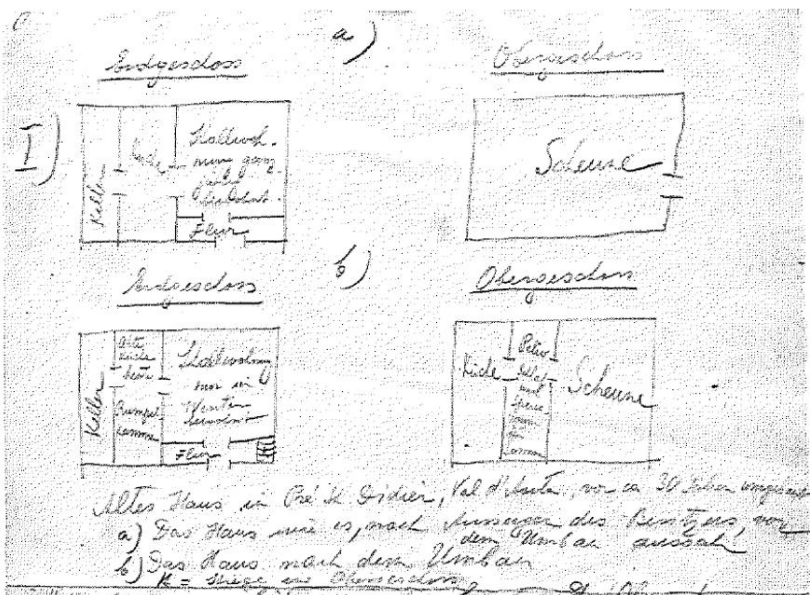 a)
Erdgeschoss
Obergeschoss
I)
Keller
Küche
Stallwoh-
nung ganz-
bewohnt.
Flur
Scheune
b)
Erdgeschoss
Obergeschoss
Keller
Alte
Küche
heute
Rumpel
kammer
Stallwohnung
nur im
Winter
bewohnt
Flur
Küche
Scheune
Altes Haus in Pré St Didier, Val d'Aosta, vor ca 30 Jahren
a) Das Haus wie es, nach Aussage des Besitzers, vor
dem Umbau aussah
b) Das Haus nach dem Umbau
K = Stiege ins Obergeschoss